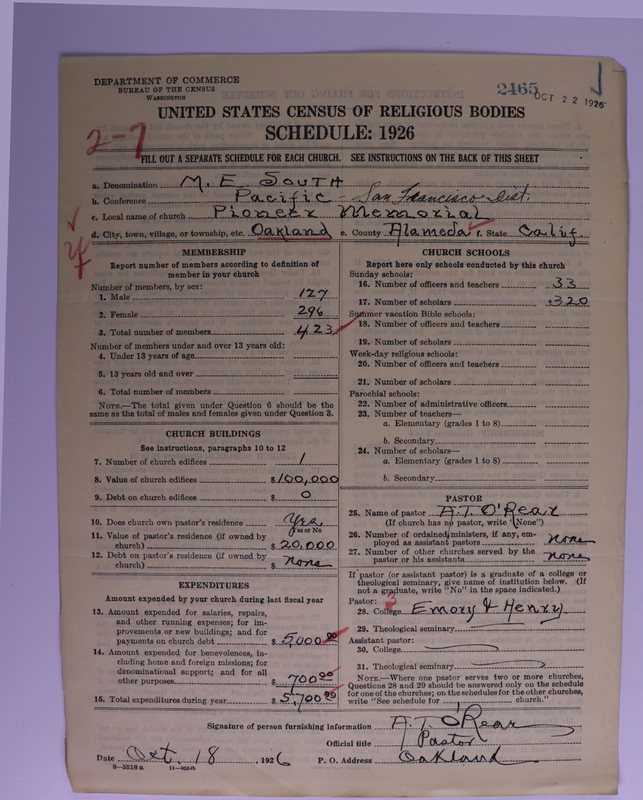 DEPARTMENT OF COMMERCE
BUREAU OF THE CENSUS
WASHINGTON
2465 OCT 22 1926
UNITED STATES CENSUS OF RELIGIOUS BODIES
SCHEDULE: 1926
2-7
FILL OUT A SEPARATE SCHEDULE FOR EACH CHURCH. SEE INSTRUCTIONS ON THE BACK OF THIS SHEET
a. Denomination M. E. South
b. Conference Pacific - San Francisco Dist.
c. Local name of church Pioneer Memorial
d. City, town, village, or township, etc. Oakland e. County Alameda f. State Calif.
MEMBERSHIP
Report number of members according to definition of
member in your church
Number of members, by sex:
1. Male 127
2. Female 296
3. Total number of members 423
Number of members under and over 13 years old:
4. Under 13 years of age
5. 13 years old and over
6. Total number of members
NOTE.—The total given under Question 6 should be the
same as the total of males and females given under Question 3.
CHURCH BUILDINGS
See instructions, paragraphs 10 to 12
7. Number of church edifices 1
8. Value of church edifices $100,000
9. Debt on church edifices $ 0
10. Does church own pastor's residence Yes
Yes or No
11. Value of pastor's residence (if owned by
church) $ 20,000
12. Debt on pastor's residence (if owned by
church) $ none
EXPENDITURES
Amount expended by your church during last fiscal year
13. Amount expended for salaries, repairs,
and other running expenses; for im-
provements or new buildings; and for
payments on church debt $ 5,000 00
14. Amount expended for benevolences, in-
cluding home and foreign missions; for
denominational support; and for all
other purposes $ 700 00
15. Total expenditures during year $ 5,700 00
CHURCH SCHOOLS
Report here only schools conducted by this church
Sunday schools:
16. Number of officers and teachers 33
17. Number of scholars 320
Summer vacation Bible schools:
18. Number of officers and teachers
19. Number of scholars
Week-day religious schools:
20. Number of officers and teachers
21. Number of scholars
Parochial schools:
22. Number of administrative officers
23. Number of teachers—
a. Elementary (grades 1 to 8)
b. Secondary
24. Number of scholars—
a. Elementary (grades 1 to 8)
b. Secondary
PASTOR
25. Name of pastor A. T. O'Rear
(If church has no pastor, write "None")
26. Number of ordained ministers, if any, em-
ployed as assistant pastors none
27. Number of other churches served by the
pastor or his assistants none
If pastor (or assistant pastor) is a graduate of a college or
theological seminary, give name of institution below. (If
not a graduate, write "No" in the space indicated.)
Pastor: 3
28. College Emory & Henry
29. Theological seminary
Assistant pastor:
30. College
31. Theological seminary
NOTE.—Where one pastor serves two or more churches,
Questions 28 and 29 should be answered only on the schedule
for one of the churches; on the schedules for the other churches,
write "See schedule for church."
Signature of person furnishing information A. T. O'Rear
Official title Pastor
Date Oct. 18, 1926 P. O. Address Oakland
8-5518a